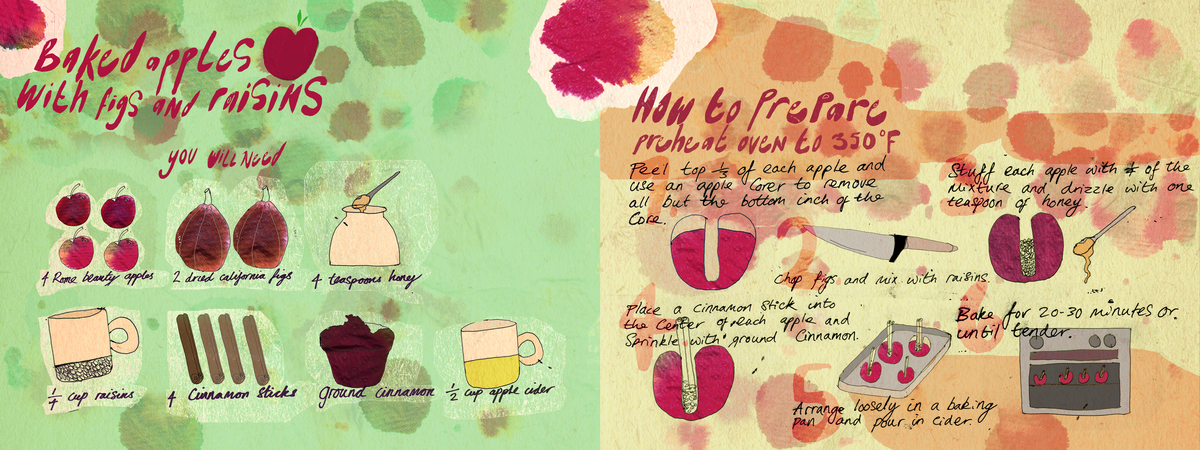 Baked apples
with figs and raisins
you will need
4 Rome beauty apples
2 dried california figs
4 teaspoons honey
1/4 cup raisins
4 Cinnamon Sticks
ground cinnamon
1/2 cup apple cider
How to Prepare
preheat oven to 350°F
Peel top 1/3 of each apple and
use an apple Corer to remove
all but the bottom inch of the
Core.
2
Chop figs and mix with raisins.
Stuff each apple with of the
mixture and drizzle with one
teaspoon of honey.
4
Place a cinnamon stick into
the Center of each apple and
Sprinkle with ground Cinnamon.
5
Arrange loosely in a baking
pan and pour in cider.
6
Bake for 20-30 minutes or
until tender.